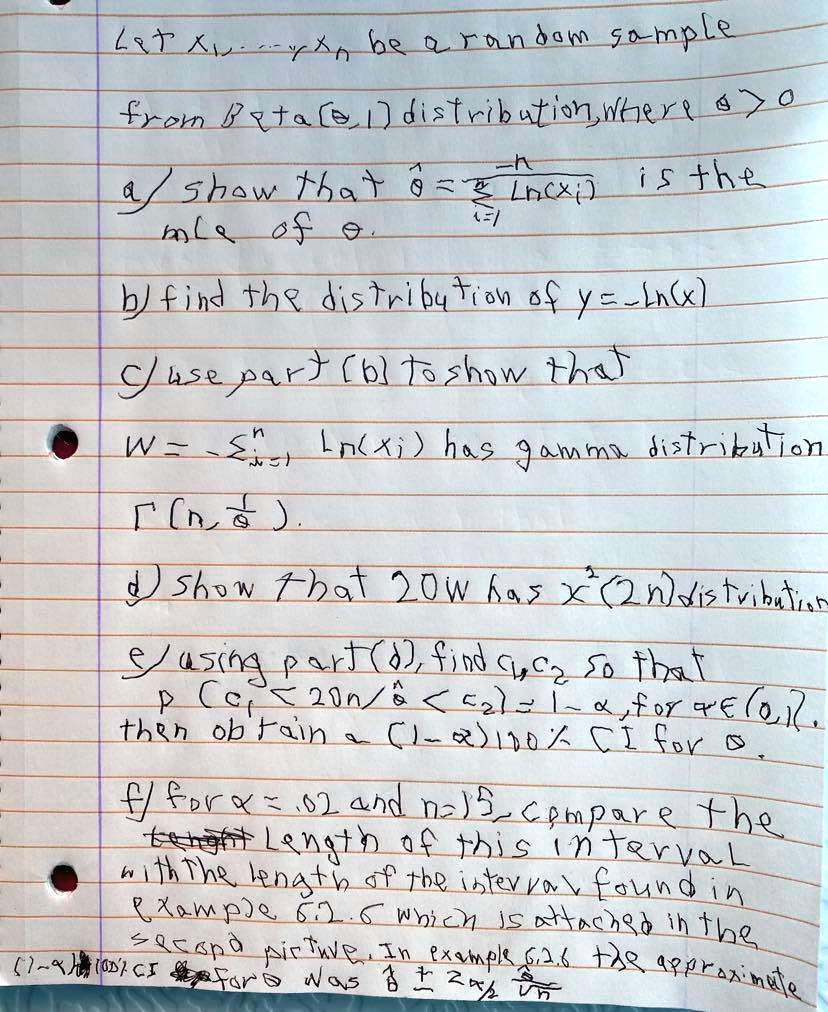 Let x₁, ....., xₙ be a random sample
from Beta(θ,1) distribution, where θ > 0
a/ show that θ̂ = -n / Σᵢ₌₁ⁿ Ln(xᵢ) is the
mle of θ.
b) find the distribution of y = -Ln(x)
c) use part (b) to show that
W = - Σᵢ₌₁ⁿ Ln(xᵢ) has gamma distribution
Γ(n, 1/θ).
d) show that 2θW has x²(2n) distribution
e) using part(d), find c₁, c₂ so that
P (c₁ < 2θn/θ̂ < c₂) = 1-α, for α∈(0,1).
then obtain a (1-α)100% CI for θ.
f) for α = .02 and n=15, compare the
Length of this interval
with The length of the interval found in
example 6.2.6 which is attached in the
second picture. In example 6.2.6 the approximate
(1-α)100% CI for θ was θ̂ ± Zα/2 θ̂/√n